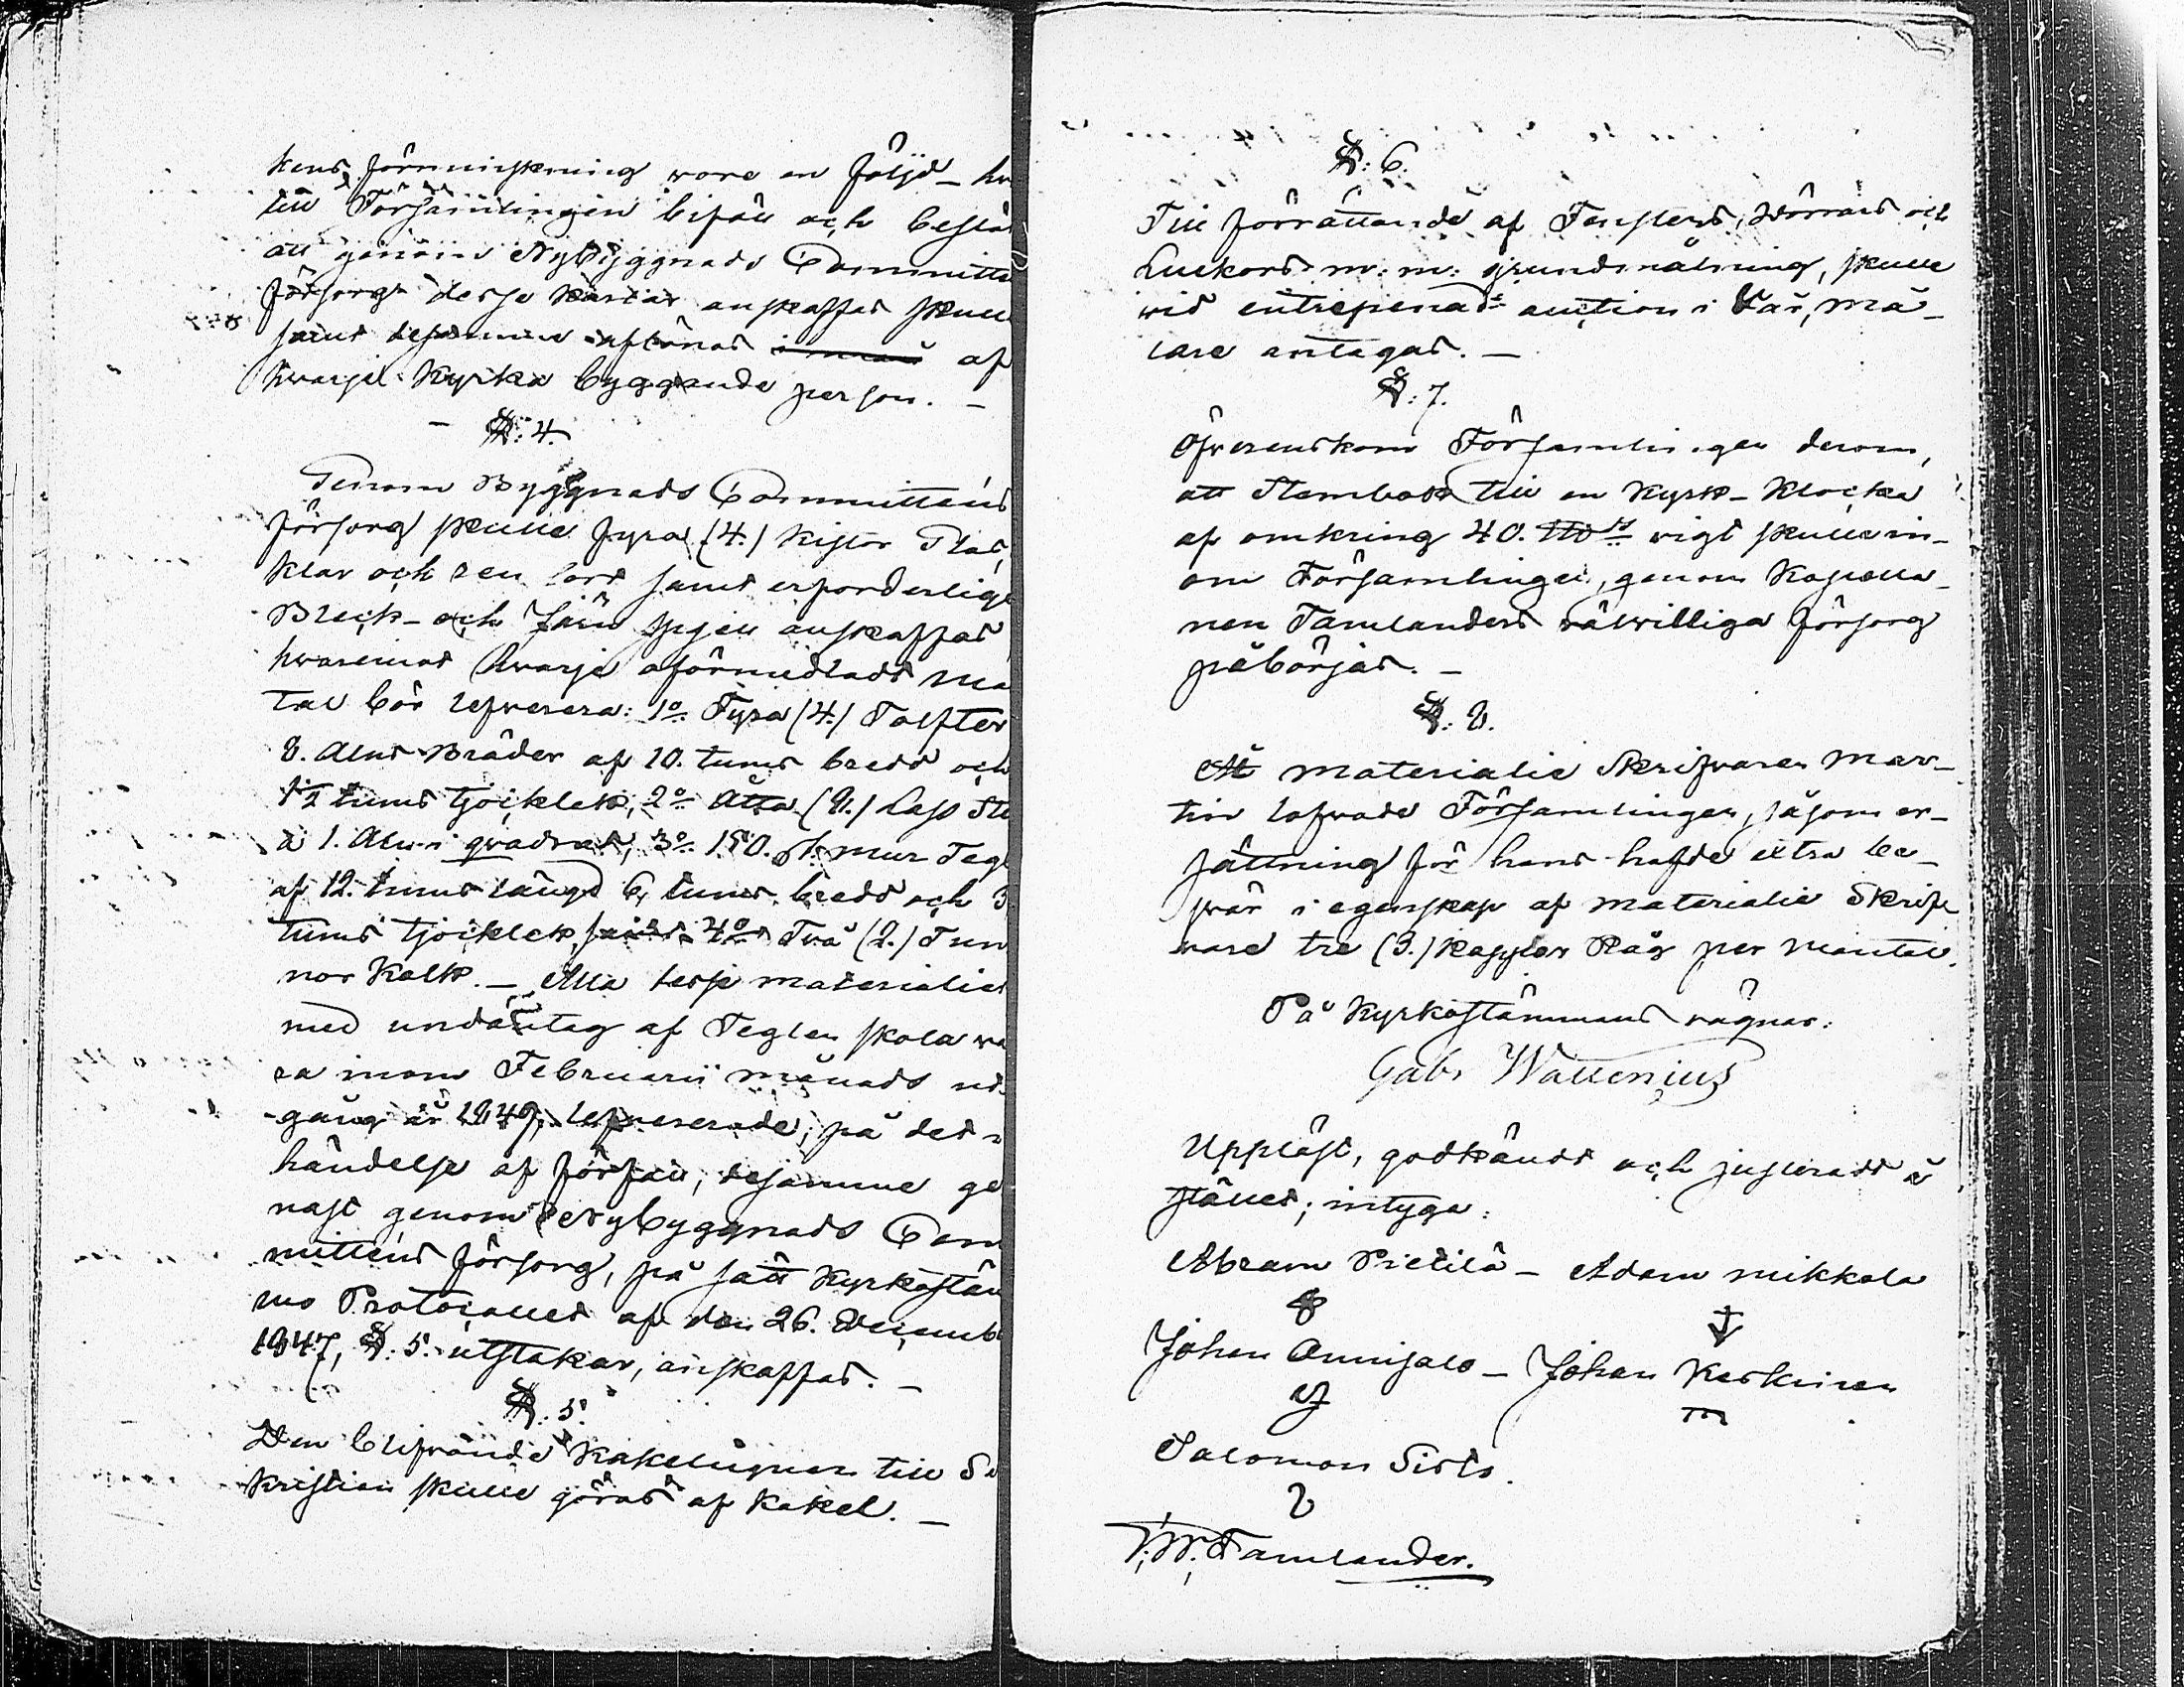 kens förminskning vore en följd – hv
till Församlingen biföll och beslöt
att genom Nybyggnads Committe
försorg desse Karlar anskaffas skulle
samt desamme aflönas af
hvarje Kyrka byggande person. –
– §: 4.
Genom Byggnads Committéns
försorg skulle fyra (4.) Kistor Glas,
klar och ren sort samt erforderligt
Bleck- och Järn Spijk anskaffas
hvaremot hvarje oförmedladt Man
tal bör lefverera: 1o Fyra (4.) Tolfter
8. Alns Bräder af 10. tums bredd och
1½ tums tjocklek, 2o Åtta (8.) Lass Ste
à 1. Aln i qvadrat, 3o 150. st. mur Tegel
af 12. tums längd 6, tums bredd och 3
tums tjocklek, samt 4o Två (2.) Tun
nor Kalk. – Alla desse materialier
med undantag af Teglen skola va
ra inom Februarii månads ut-
gång år 1849, lefvererade, på det i
händelse af förfall, desamme ge
nast genom Nybyggnads Com
mitténs försorg, på sätt Kyrkostäm
mo Protocollet af den 26. Decemb
1847, §. 5. utstakar, anskaffas. –
§: 5.
Den blifvande Kakelugnen till Sa
kristian skulle göras af Kakel. –
§: 6.
Till förrättande af Fensters, Dörrars och
Luckors m: m: grundmålning, skulle
vid entreprenads auction i Vår, må-
lare antagas. –
§: 7.
Öfverenskom Församlingen derom,
att Stambok till en Kyrk-Klocka
af omkring 40. vigt skulle in-
om Församlingen, genom Kapella-
nen Tamlanders välvilliga försorg
påbörjas. –
§: 8.
Åt materialie Skrifvaren Mar-
tin lofvade Församlingen, såsom er-
sättning för hans hafde extra be-
svär i egenskap af materialie Skrif
vare tre (3.) Kappar Råg per mantal.
På Kyrkostämmans vägnar:
Gabr Wallenius
Uppläst, godkändt och justeradt å
stället; intyga:
Abram Pietilä – Adam Mikkola
Johan Annijalo – Johan Keskinen
Salomon Sirto.
J. W. Tamlander.